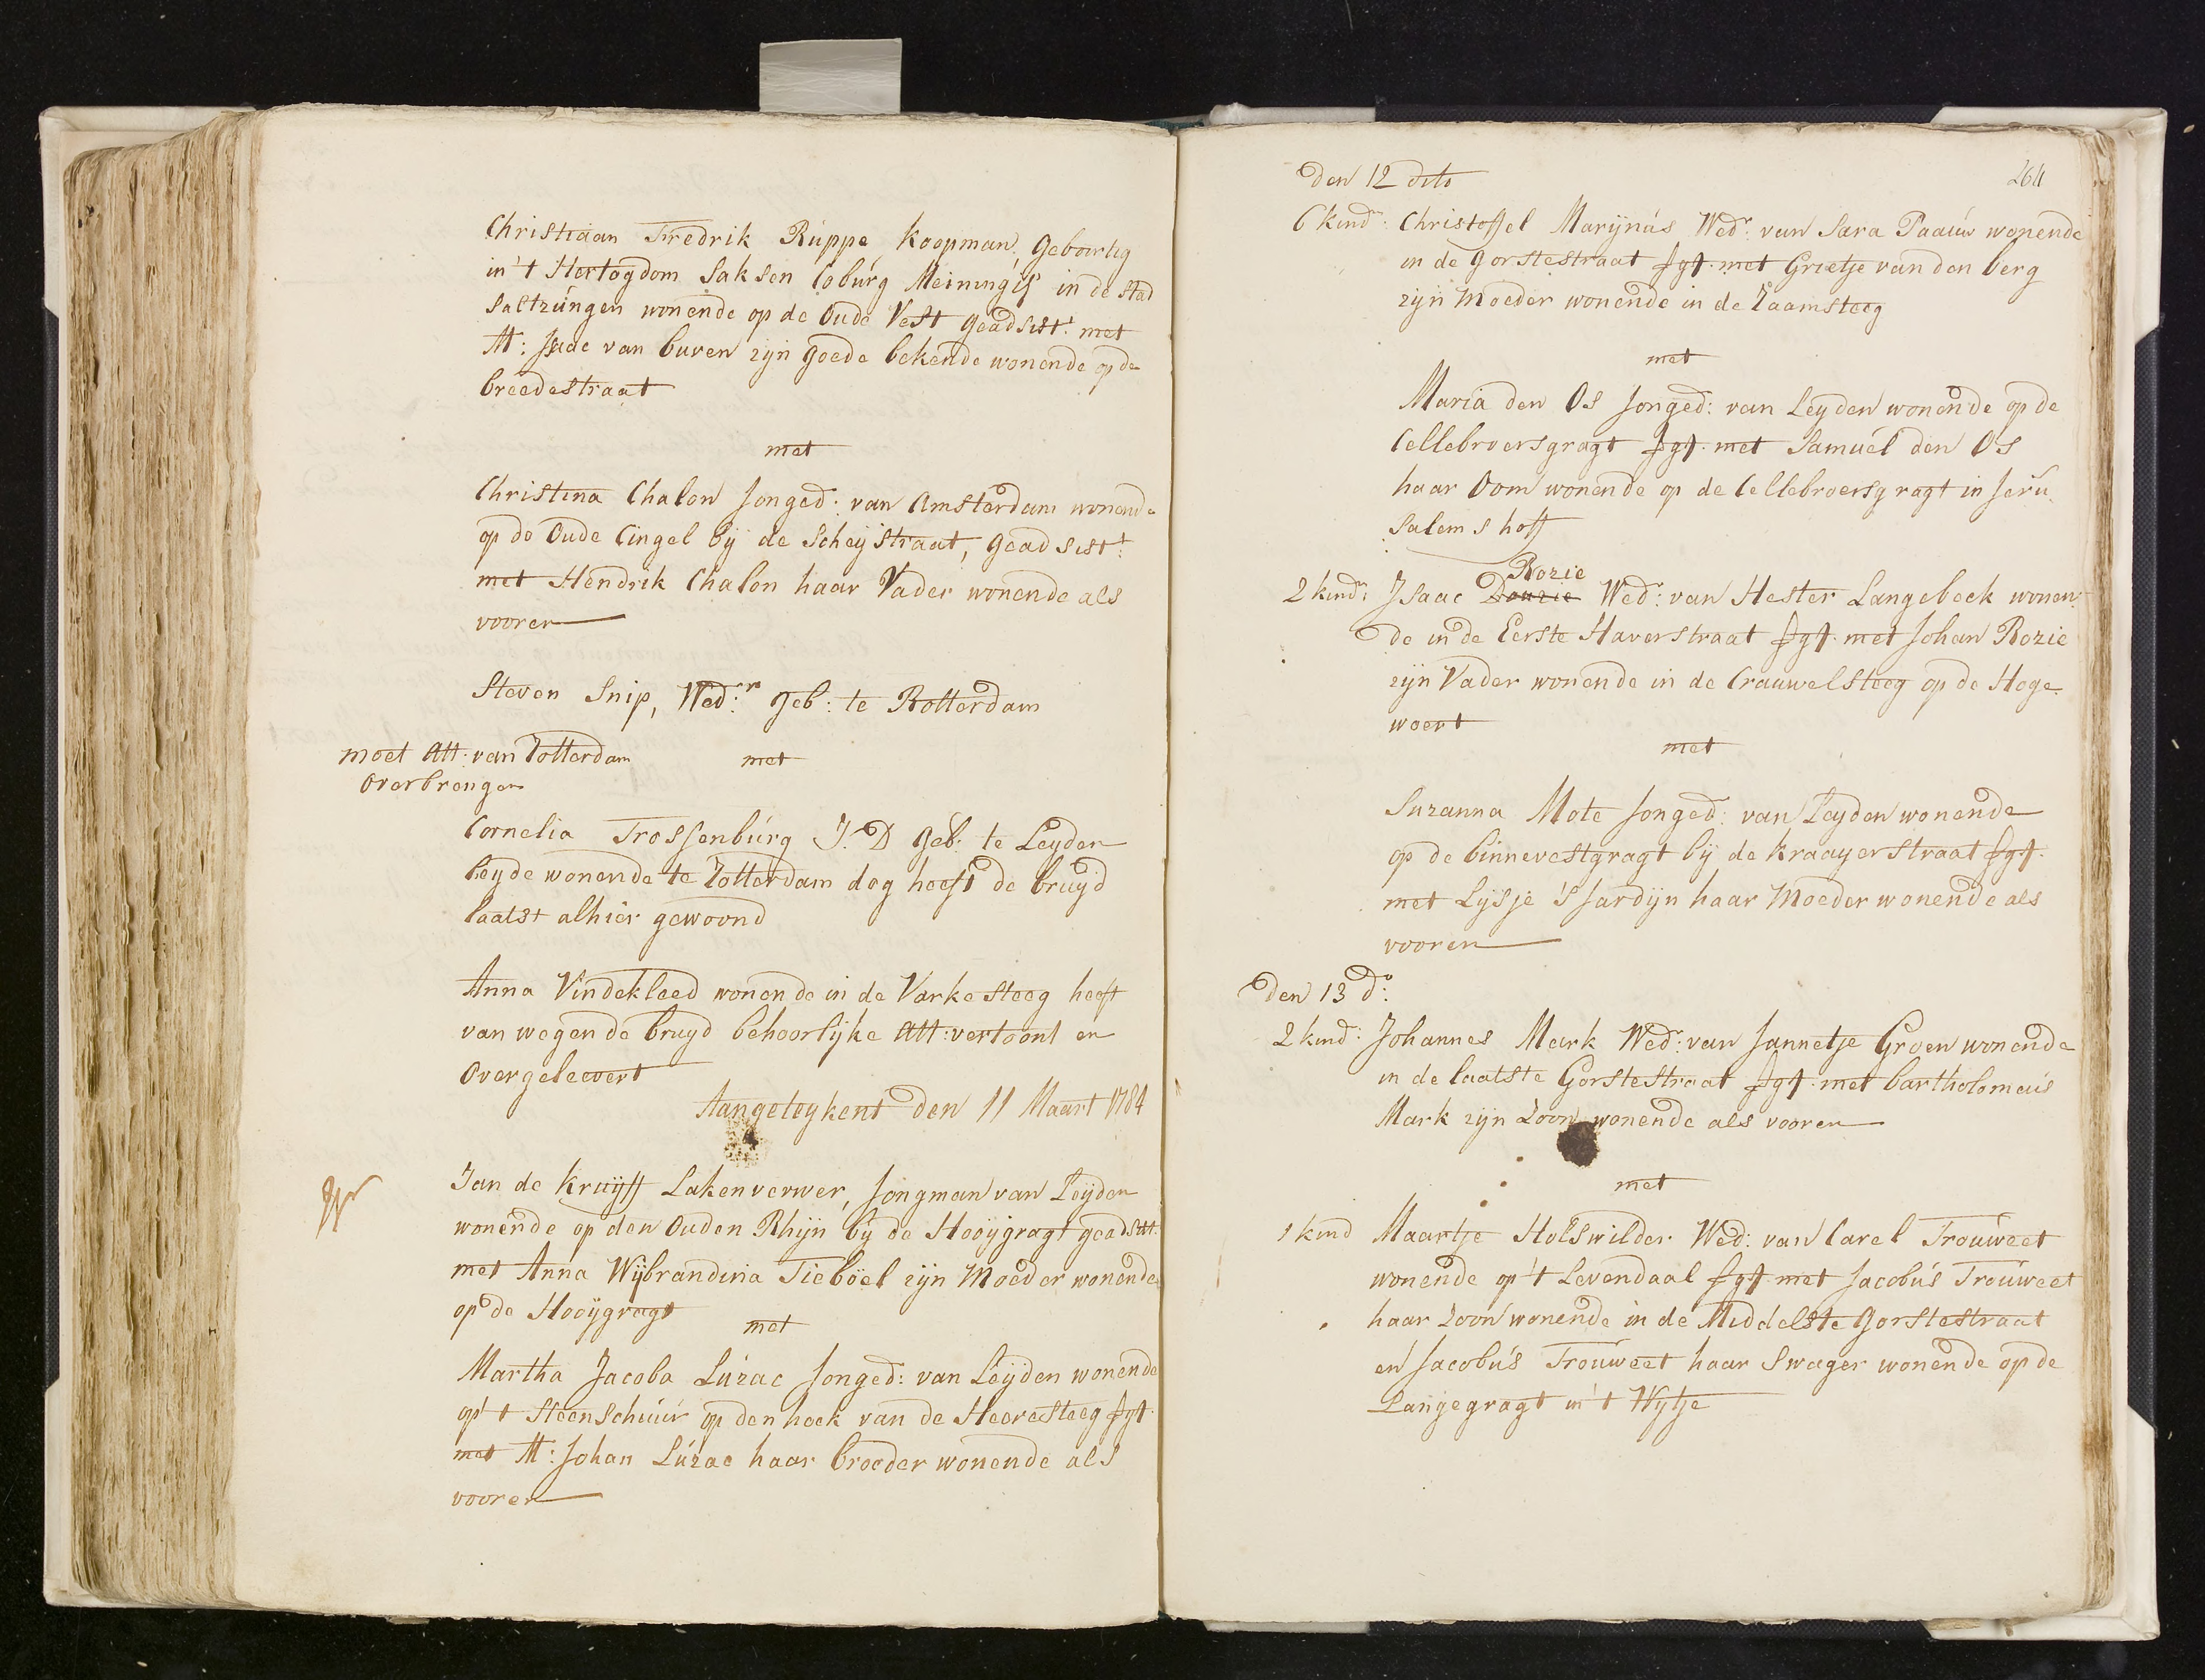 Christiaan Fredrik Ruppe Koopman, Geboortig
in 't Hertogdom Saksen Coburg Meiningis in de stad
Saltzungen wonende op de Oude Vest geadsist:t met
M: van Buren zyn goede bekende wonende op de
breedestraat
met
Christina Chalon Jonged: van Amsterdam wonende
op de Oude Cingel by de Scheystraat, geadsist:t
met Hendrik Chalon haar Vader wonende als
vooren
Steven Snip, Wed:r Geb: te Rotterdam
moet Att: van Rotterdam
overbrengen
met
Cornelia Trossenburg J:D Geb: te Leyden
beyde wonende te Rotterdam dog heeft de bruyd
laatst alhier gewoond
Anna Vindekleed wonende in de Varkesteeg heeft
van wegen de bruyd behoorlyke Att: vertoont en
overgeleevert
Aangeteykent den 11 Maart 1784
Jan de Kruyff Lakenverwer, Jongman van Leyden
wonende op den Ouden Rhyn by de Hooygragt geadsist:
met Anna Wybrandina Tieböel zyn Moeder wonende
op de Hooygragt
met
Martha Jacoba Luzac Jonged: van Leyden wonende
op 't Steenschuur op den hoek van de Heeresteeg
met M: Johan Luzac haar broeder wonende als
vooren
264
Den 12 dito
6 kind: Christoffel Marynus Wed:r van Sara Paauw wonende
in de Gorstestraat met Grietje van den berg
zyn Moeder wonende in de Raamsteeg
met
Maria den Os Jonged: van Leyden wonende op de
Cellebroersgragt met Samuel den Os
haar Oom wonende op de Cellebroersgragt in Jeru
salems hoff
Rozie
2 kind: Isaac Douzie Wed:r van Hester Langebeek wonen
de in de Eerste Haverstraat met Johan Rozie
zyn Vader wonende in de Crauwelsteeg op de Hoge
woert
met
Suzanna Mote Jonged: van Leyden wonende
op de binnevestgragt by de Kraayerstraat
met Lysje 's Jardyn haar Moeder wonende als
vooren
Den 13 d:o
2 kind: Johannes Mark Wed:r van Jannetje Groen wonende
in de laatste Gorstestraat met Bartholomeus
Mark zyn Zoon wonende als vooren
met
1 kind Maartje Holswilder Wed: van Carel Trouweet
wonende op 't Levendaal met Jacobus Trouweet
haar Zoon wonende in de Middelste Gorstestraat
en Jacobus Trouweet haar Swager wonende op de
Langegragt in 't Wytje